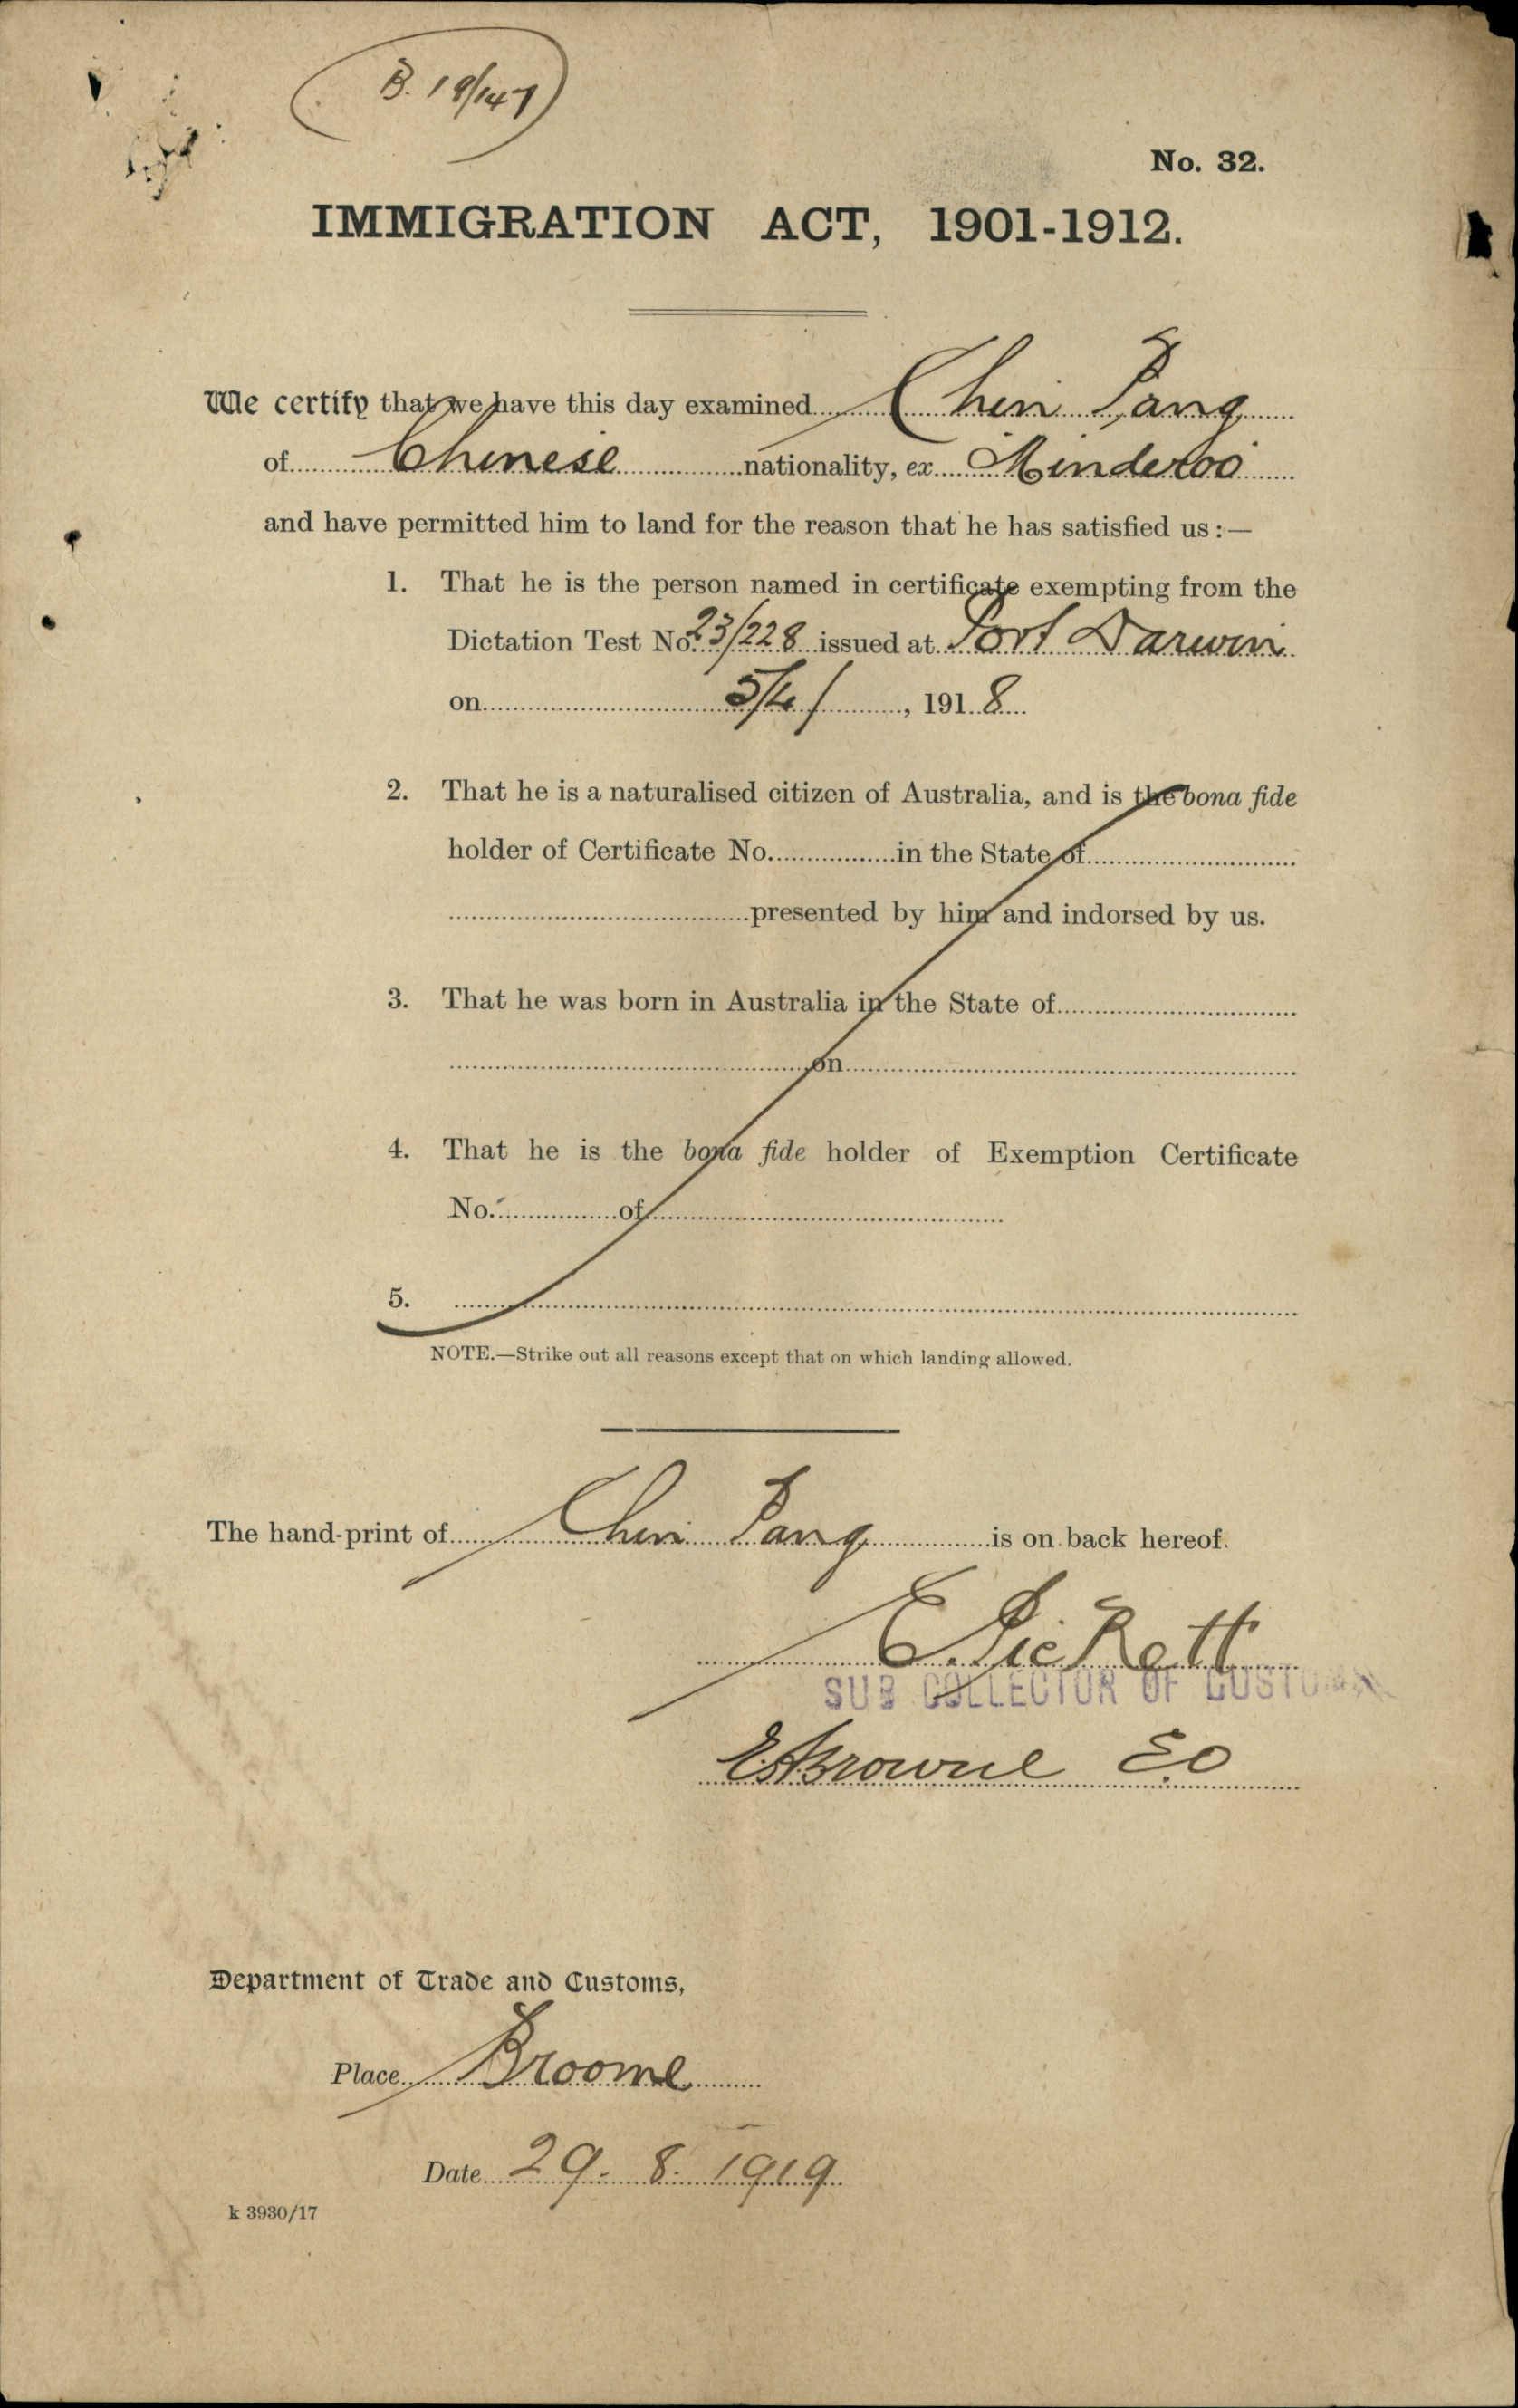 B. 19/147
No. 32.
IMMIGRATION ACT, 1901-1912.
We certify that we have this day examined Chin Pang
of Chinese nationality, ex Minderoo
and have permitted him to land for the reason that he has satisfied us :—
1. That he is the person named in certificate exempting from the
Dictation Test No. 23/228 issued at Port Darwin
on 5/4/, 1918
2. That he is a naturalised citizen of Australia, and is the bona fide
holder of Certificate No. in the State of
presented by him and indorsed by us.
3. That he was born in Australia in the State of
on
4. That he is the bona fide holder of Exemption Certificate
No. of
5.
NOTE.—Strike out all reasons except that on which landing allowed.
The hand-print of Chin Pang is on back hereof.
E. Pickett
SUB COLLECTOR OF CUSTOMS
Browne EO
Department of Trade and Customs,
Place Broome
Date 29. 8. 1919
k 3930/17